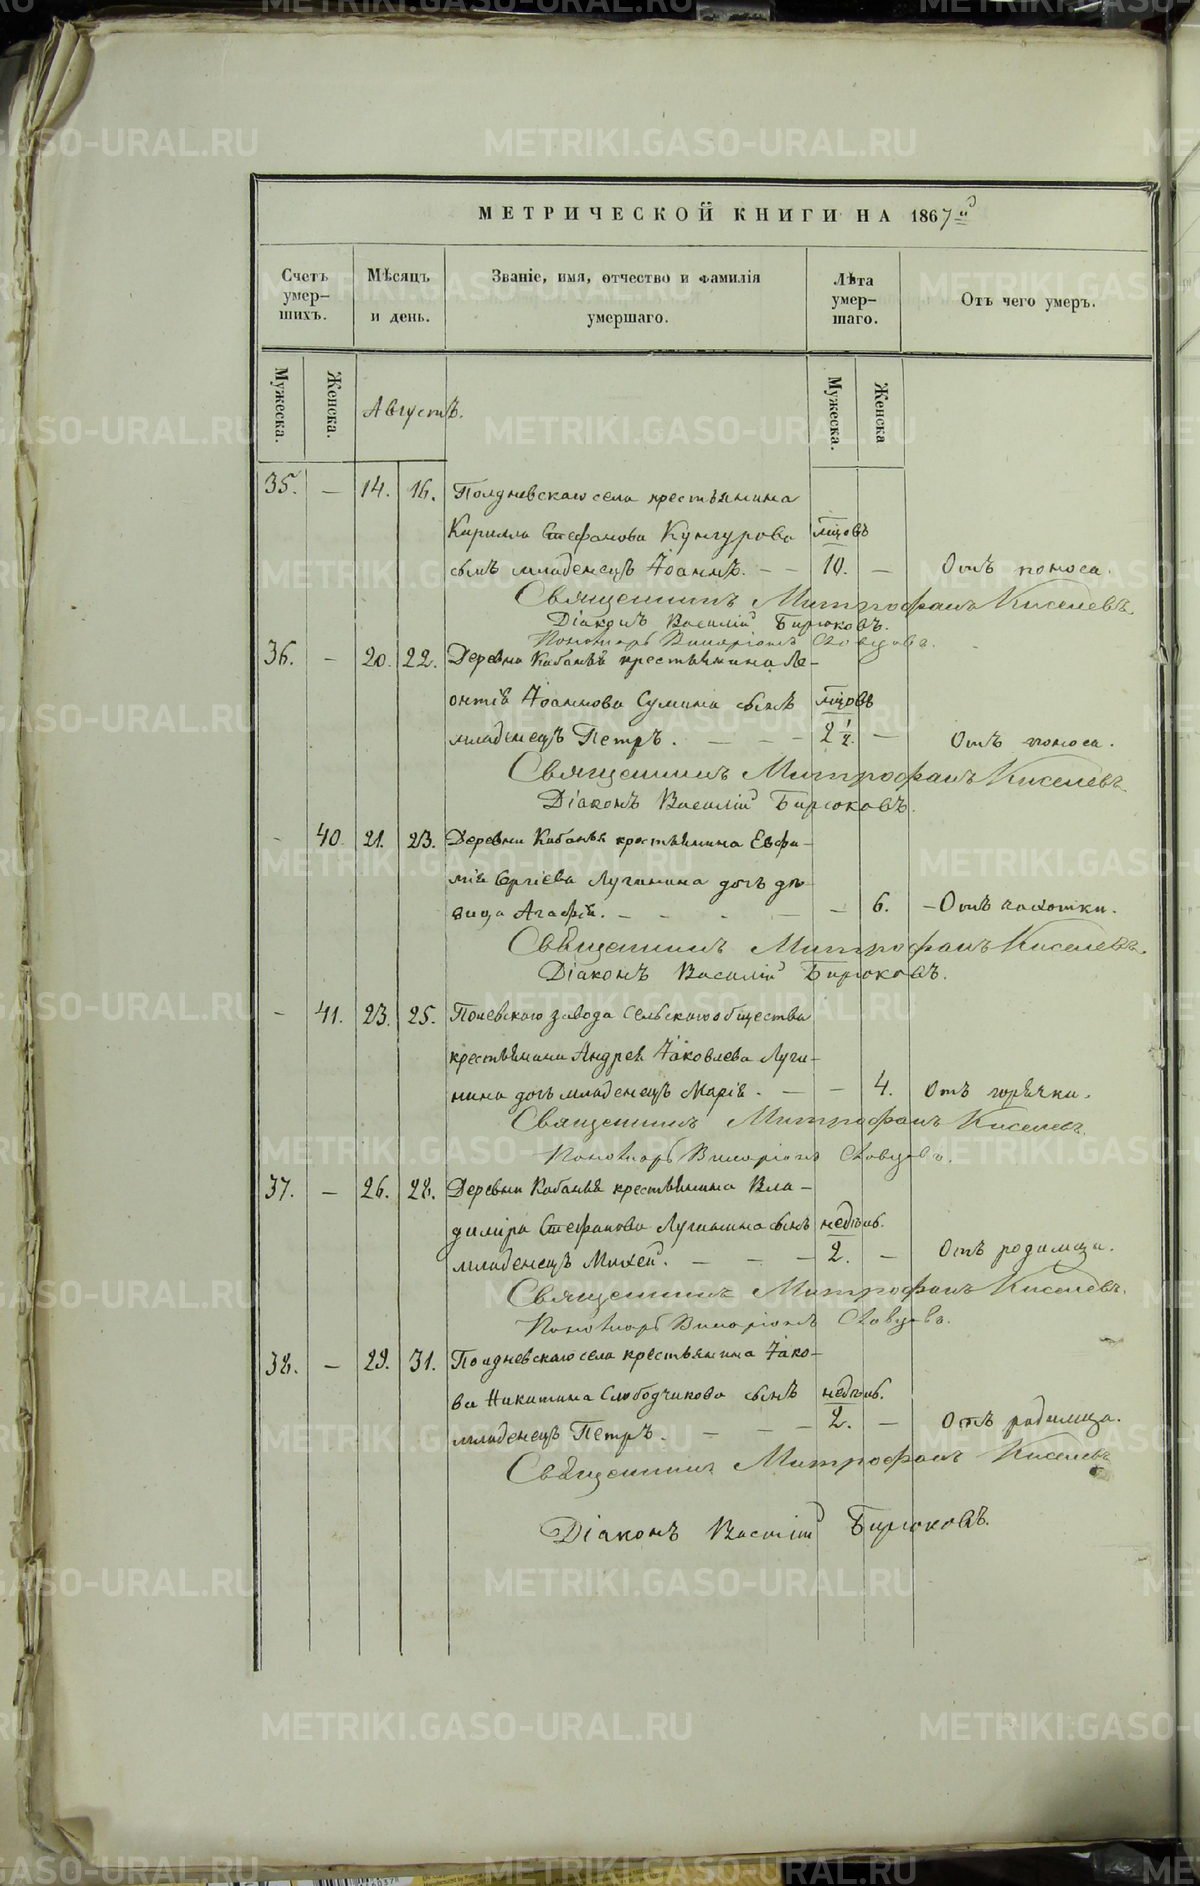 МЕТРИЧЕСКОЙ КНИГИ НА 1867й
Счетъ умер-шихъ.
Мѣсяцъ и день.
Званіе, имя, отчество и фамилія умершаго.
Лѣта умер-шаго.
Отъ чего умеръ.
Мужеска.
Женска.
Августъ.
Мужеска.
Женска
35. — 14. 16. Полдневскаго села крестьянина
Кирилла Стефанова Кунгурова мцовъ
сынъ младенецъ Іоаннъ. — — 10. — Отъ поноса.
Священникъ Митрофанъ Киселевъ.
Діаконъ Василій Бирюковъ.
Пономарь Виларіонъ Словцовъ.
36. — 20. 22. Деревни Кабаньей крестьянина Ле-
онтія Іоаннова Сумина сынъ мцовъ
младенецъ Петръ. — — — 2 1/2. — Отъ поноса.
Священникъ Митрофанъ Киселевъ.
Діаконъ Василій Бирюковъ.
- 40. 21. 23. Деревни Кабанья крестьянина Евфи-
мія Сергіева Лугинина дочь дѣ-
вица Агафія. — — — — 6. — Отъ чахотки.
Священникъ Митрофанъ Киселевъ.
Діаконъ Василій Бирюковъ.
- 41. 23. 25. Полевскаго завода сельскаго общества
крестьянина Андрея Іаковлева Луги-
нина дочь младенецъ Марія. — — 4. Отъ горячки.
Священникъ Митрофанъ Киселевъ.
Пономарь Виларіонъ Словцовъ.
37. — 26. 28. Деревни Кабанья крестьянина Вла-
димира Стефанова Лугинина сынъ недѣль.
младенецъ Михей. — — — 2. — Отъ родимца.
Священникъ Митрофанъ Киселевъ.
Пономарь Виларіонъ Словцовъ.
38. — 29. 31. Полдневскаго села крестьянина Іако-
ва Никитина Слободчикова сынъ недѣль.
младенецъ Петръ. — — — 2. — Отъ родимца.
Священникъ Митрофанъ Киселевъ
Діаконъ Василій Бирюковъ.
METRIKI.GASO-URAL.RU